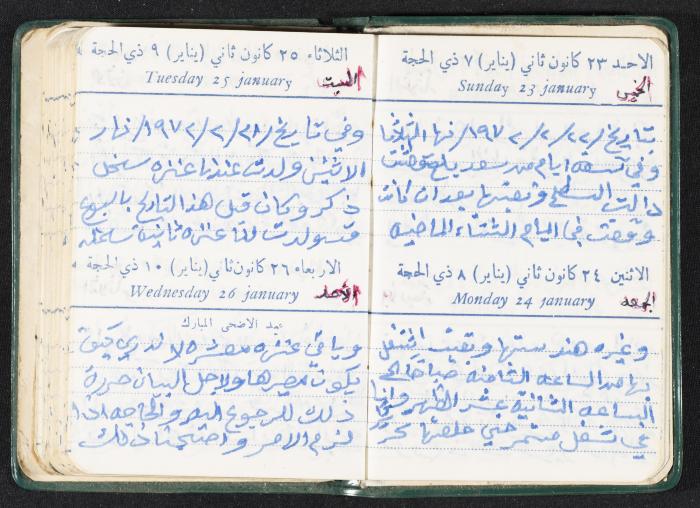 الاحد ٢٣ كانون ثاني (يناير) ٧ ذي الحجة
Sunday 23 january
الخميس
بتاريخ/ ٢٢/ ٢/ ١٩٧٢/ نها الثلاثا
وفي تسعه ايام من سعد بلع
دالت السطح و بعد ان كانت
وقعت في ايام الشتاء الماضيه
الاثنين ٢٤ كانون ثاني (يناير) ٨ ذي الحجة
Monday 24 january
الجمعه
وغيره هندستها وبقيت اشتغل
بها من الساعه الثامنه صباحا الى
الساعه الثانية عشر الظهر وانا
في شغل مستمر حتى خلصتها
الثلاثاء ٢٥ كانون ثاني (يناير) ٩ ذي الحجة
Tuesday 25 january
السبت
وفي تاريخ/ ٢٨/ ٢/ ١٩٧٢/ نهار
الاثنين ولدت عندنا عنزه سخل
ذكر وكان قبل هذا التاريخ باسبوع
ولدت لنا عنزه ثانية سخله
الاربعاء ٢٦ كانون ثاني (يناير) ١٠ ذي الحجة
Wednesday 26 january
الأحد
عيد الاضحى المبارك
وباقي عنزه معشره لا ندري كيف
يكون مصيرها ولاجل البيان حررة
ذلك للرجوع اليه والحاجه اذا
لزم الامر واحتجنا ذلك